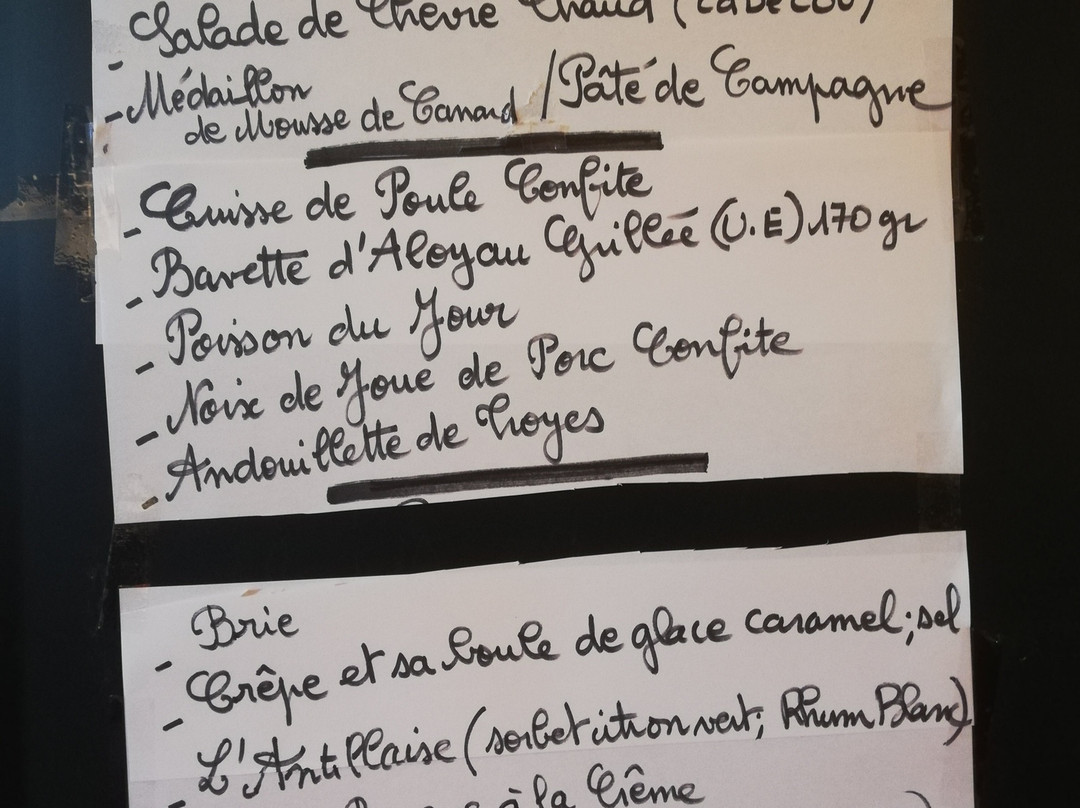 - Salade de Chèvre Chaud (Cabécou)
- Médaillon
de Mousse de Canard / Pâté de Campagne
- Cuisse de Poule Confite
- Bavette d'Aloyau Grillée (U.E) 170 gr
- Poisson du Jour
- Noix de Joue de Porc Confite
- Andouillette de Troyes
- Brie
- Crêpe et sa boule de glace caramel; sel
- L'Antillaise (sorbet citron vert; Rhum Blanc)
à la Crême